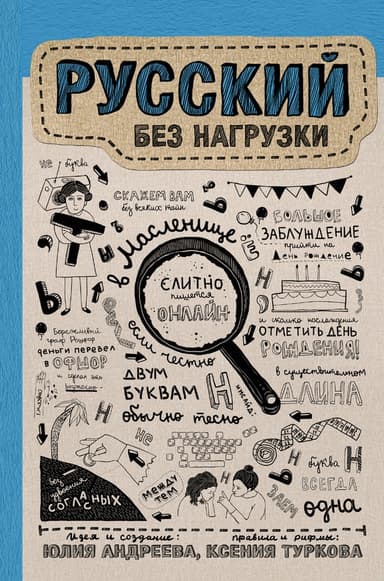 РУССКИЙ
БЕЗ НАГРУЗКИ
не
буква
СКАЖЕМ ВАМ
без всяких тайн
в Масленице
СЛИТНО
пишется
ОНЛАЙН
БОЛЬШОЕ
ЗАБЛУЖДЕНИЕ
прийти на
День рождение
и сколько наслаждения
ОТМЕТИТЬ ДЕНЬ
РОЖДЕНИЯ!
Бережливый
деньги перевел
в ОФШОР
и сделал это
если честно
ДВУМ
БУКВАМ
Н
никогда:
обычно тесно
в существительном
ДЛИНА
не
буква
Н
ВСЕГДА
одна
без
удвоения
СОГЛАСНЫХ
между
тем
ЗАЕМ
Идея и создание:
правила и рифмы:
ЮЛИЯ АНДРЕЕВА, КСЕНИЯ ТУРКОВА